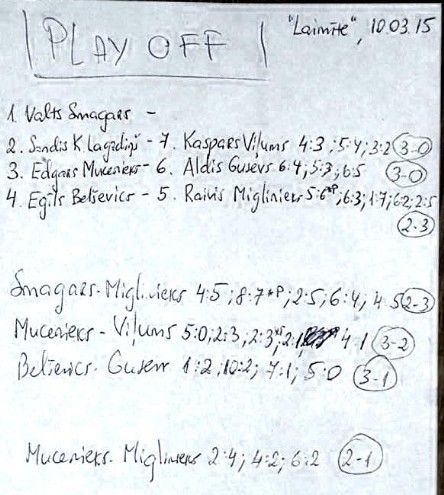 "Laimīte", 10.03.15
PLAY OFF
1 Valts Smagars -
2. Sandis K Lagzdiņš - 7. Kaspars Viļums 4:3; 5:4; 3:2 3-0
3. Edgars Mucenieks - 6. Aldis Gusevs 6:4; 5:3; 6:5 3-0
4. Egils Belševics - 5. Raivis Miglinieks 5:6*P; 6:3; 1:7; 6:2; 2:5
2-3
Smagars-Miglinieks 4:5; 8:7*P; 2:5; 6:4; 4:5 2-3
Mucenieks - Viļums 5:0; 2:3; 2:3; 2:1; 4:1 3-2
Belševics - Gusevs 1:2; 10:2; 7:1; 5:0 3-1
Mucenieks - Miglinieks 2:4; 4:2; 6:2 2-1